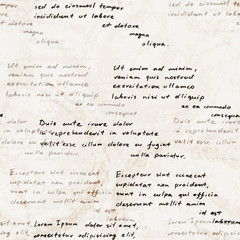 sed do eiusmod tempor
incididunt ut labore
et dolore
magna
aliqua.
Ut enim ad minim,
veniam quis nostrud
exercitation ullamco
laboris nisi ut aliquip
ex ea commodo
consequat
Duis aute irure dolor
in reprehenderit in voluptate
velit esse cillum dolore eu fugiat
nulla pariatur.
Excepteur sint occaecat
cupidatat non proident,
sunt in culpa qui officia
deserunt mollit anim
id est
laborum
Lorem Ipsum dolor sit amet,
consectetur adipisicing elit,